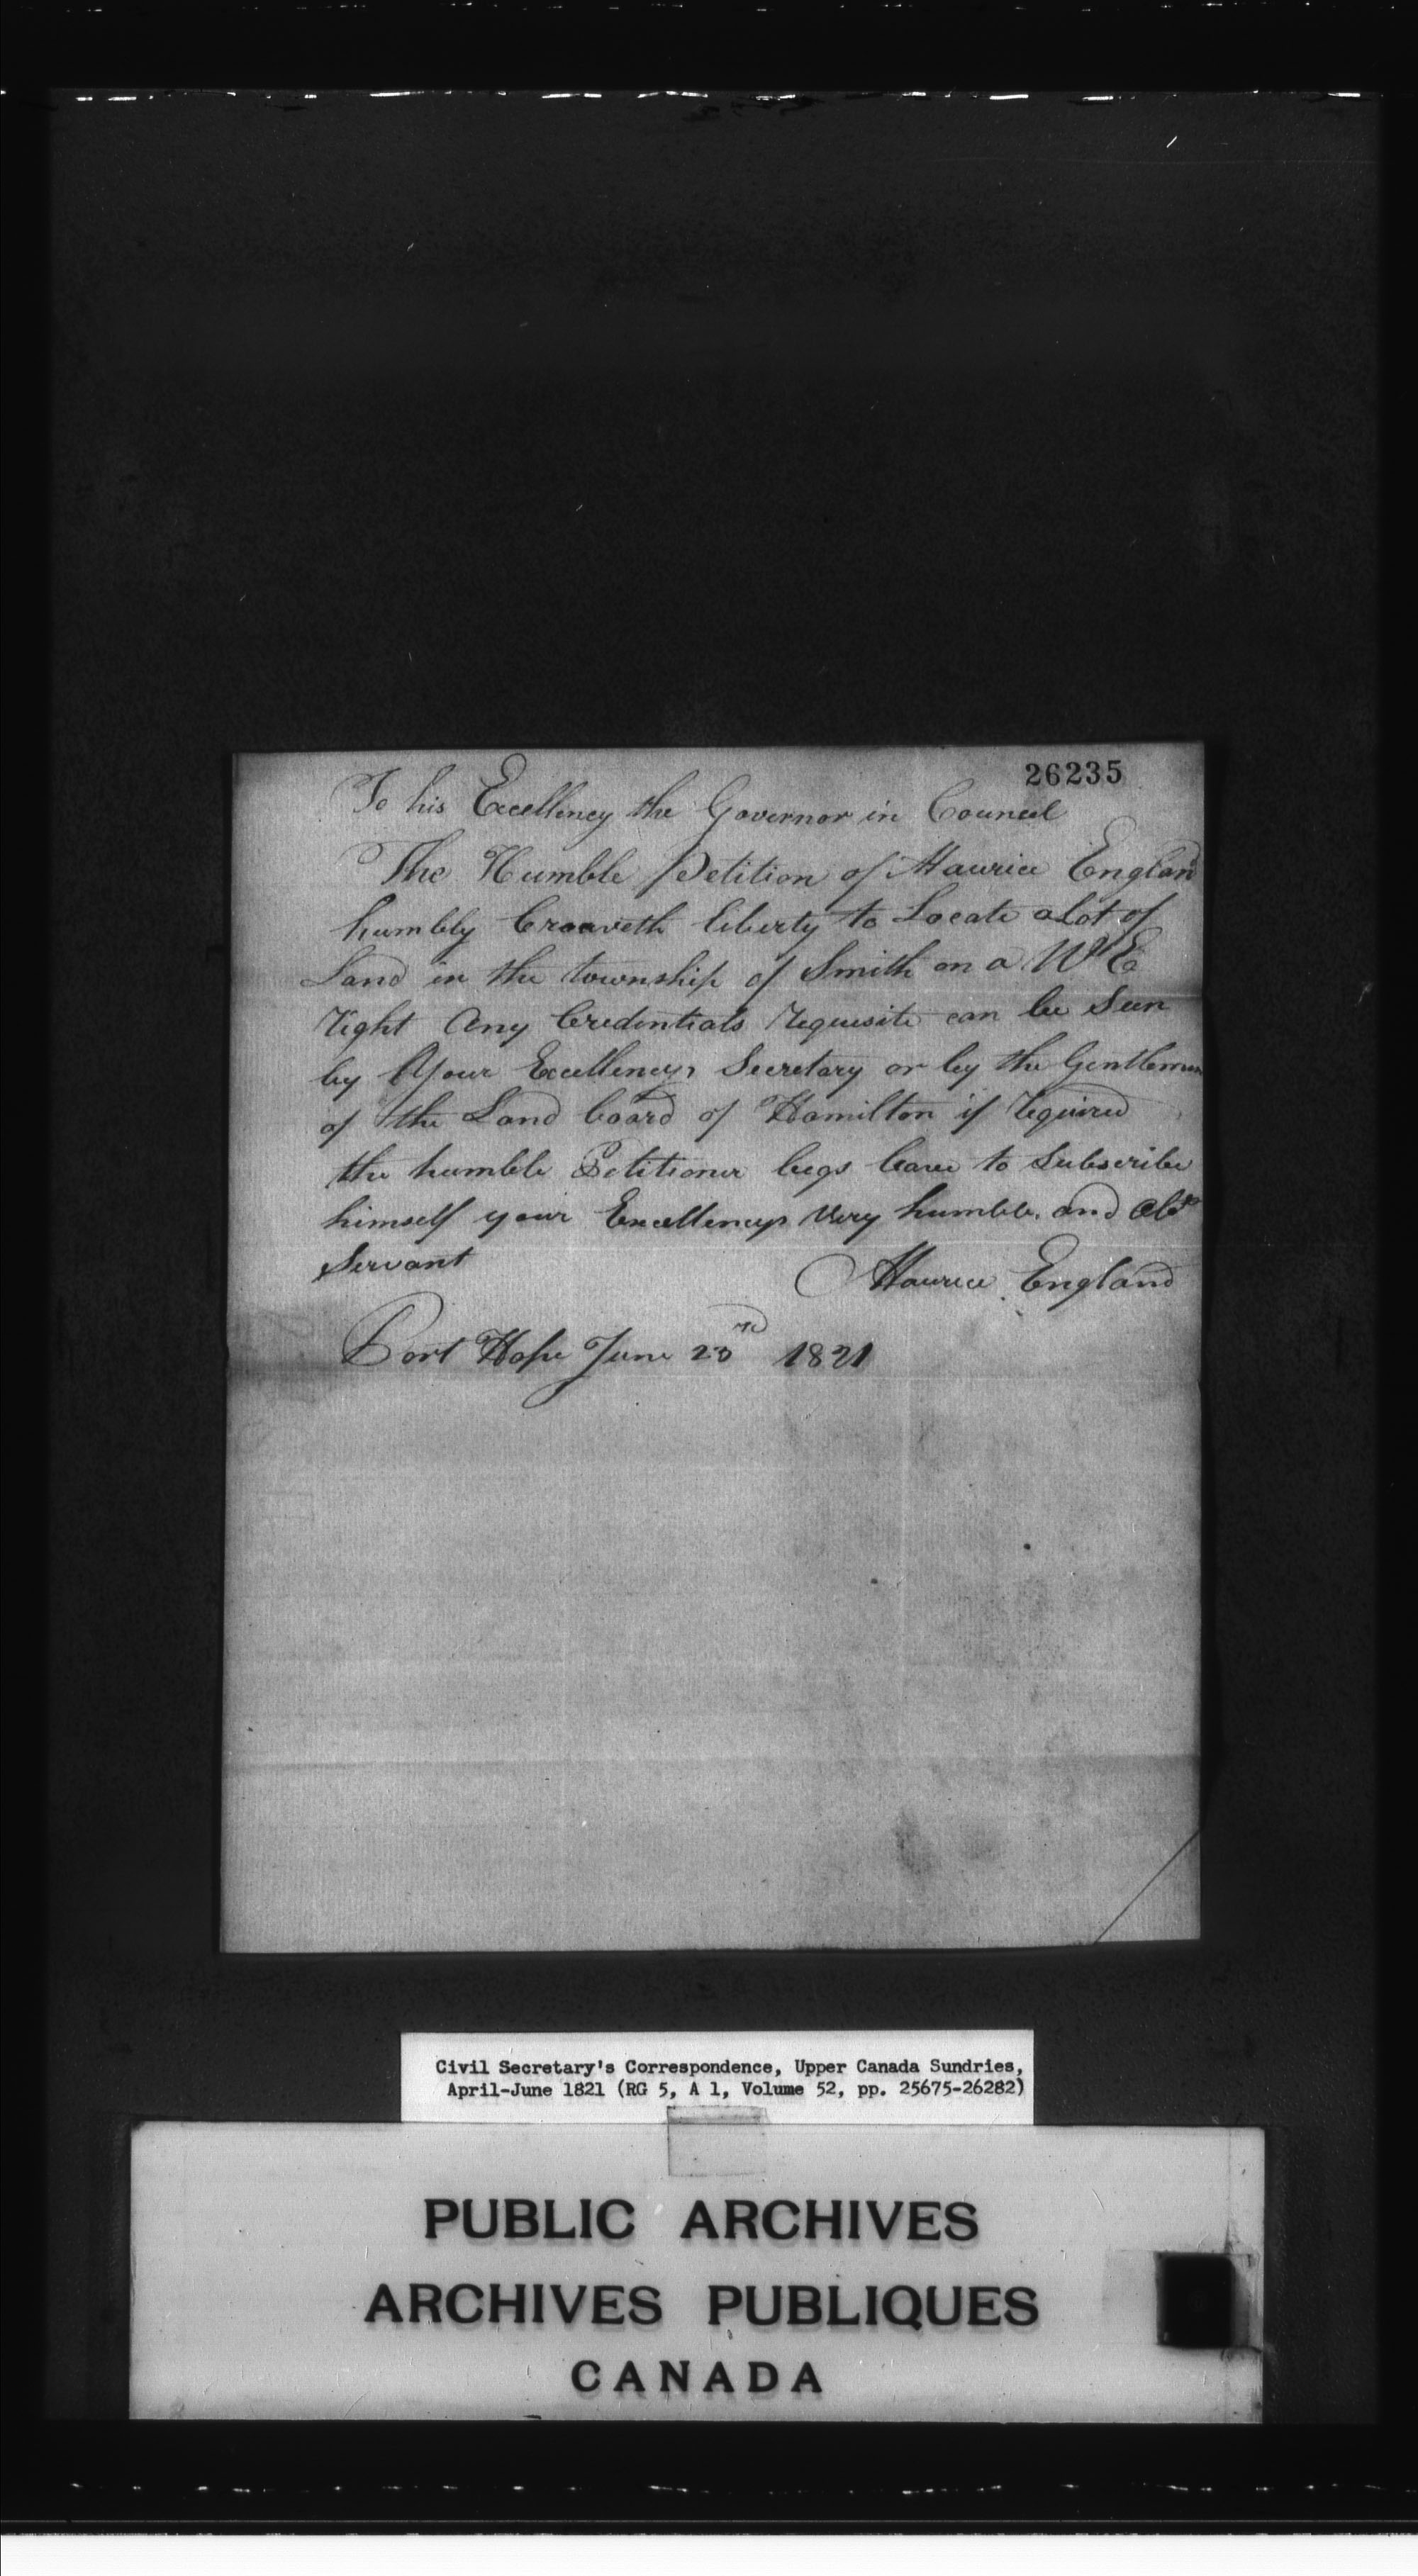 26235
To his Excellency the Governor in Council
The Humble Petition of Maurice England
humbly Craaveth liberty to Locate a Lot of
Land in the township of Smith on a U E
right Any Credentials requisite can be Seen
by Your Excellencys Secretary or by the Gentlemen
of the Land board of Hamilton if required
the humble Petitioner begs leave to Subscribe
himself your Excellencys very humble and Obt
Servant
Maurice England
Port Hope June 23rd 1821
Civil Secretary's Correspondence, Upper Canada Sundries,
April-June 1821 (RG 5, A 1, Volume 52, pp. 25675-26282)
PUBLIC ARCHIVES
ARCHIVES PUBLIQUES
CANADA